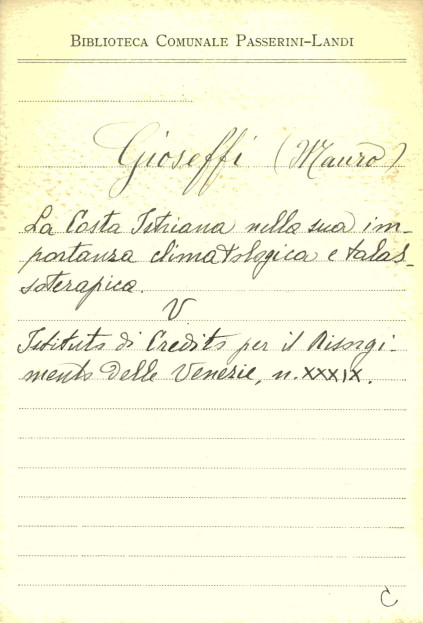 BIBLIOTECA COMUNALE PASSERINI-LANDI
Gioseffi (Mauro)
La Costa Istriana nella sua im-
portanza climatologica e talas-
soterapica.
V
Istituto di Credito per il Risorgi-
mento delle Venezie, n. XXXIX.
C